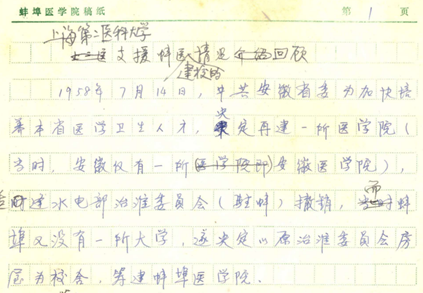 蚌埠医学院稿纸 第 1 页
上海第二医科大学
支援蚌医情况介绍回顾
建校的
1958年7月14日，中共安徽省委为加快培
养本省医学卫生人才，决定再建一所医学院（
当时，安徽仅有一所医学院即安徽医学院），
逢水电部治淮委员会（驻蚌）撤销，而蚌
埠又没有一所大学，遂决定以原治淮委员会房
屋为校舍，筹建蚌埠医学院。